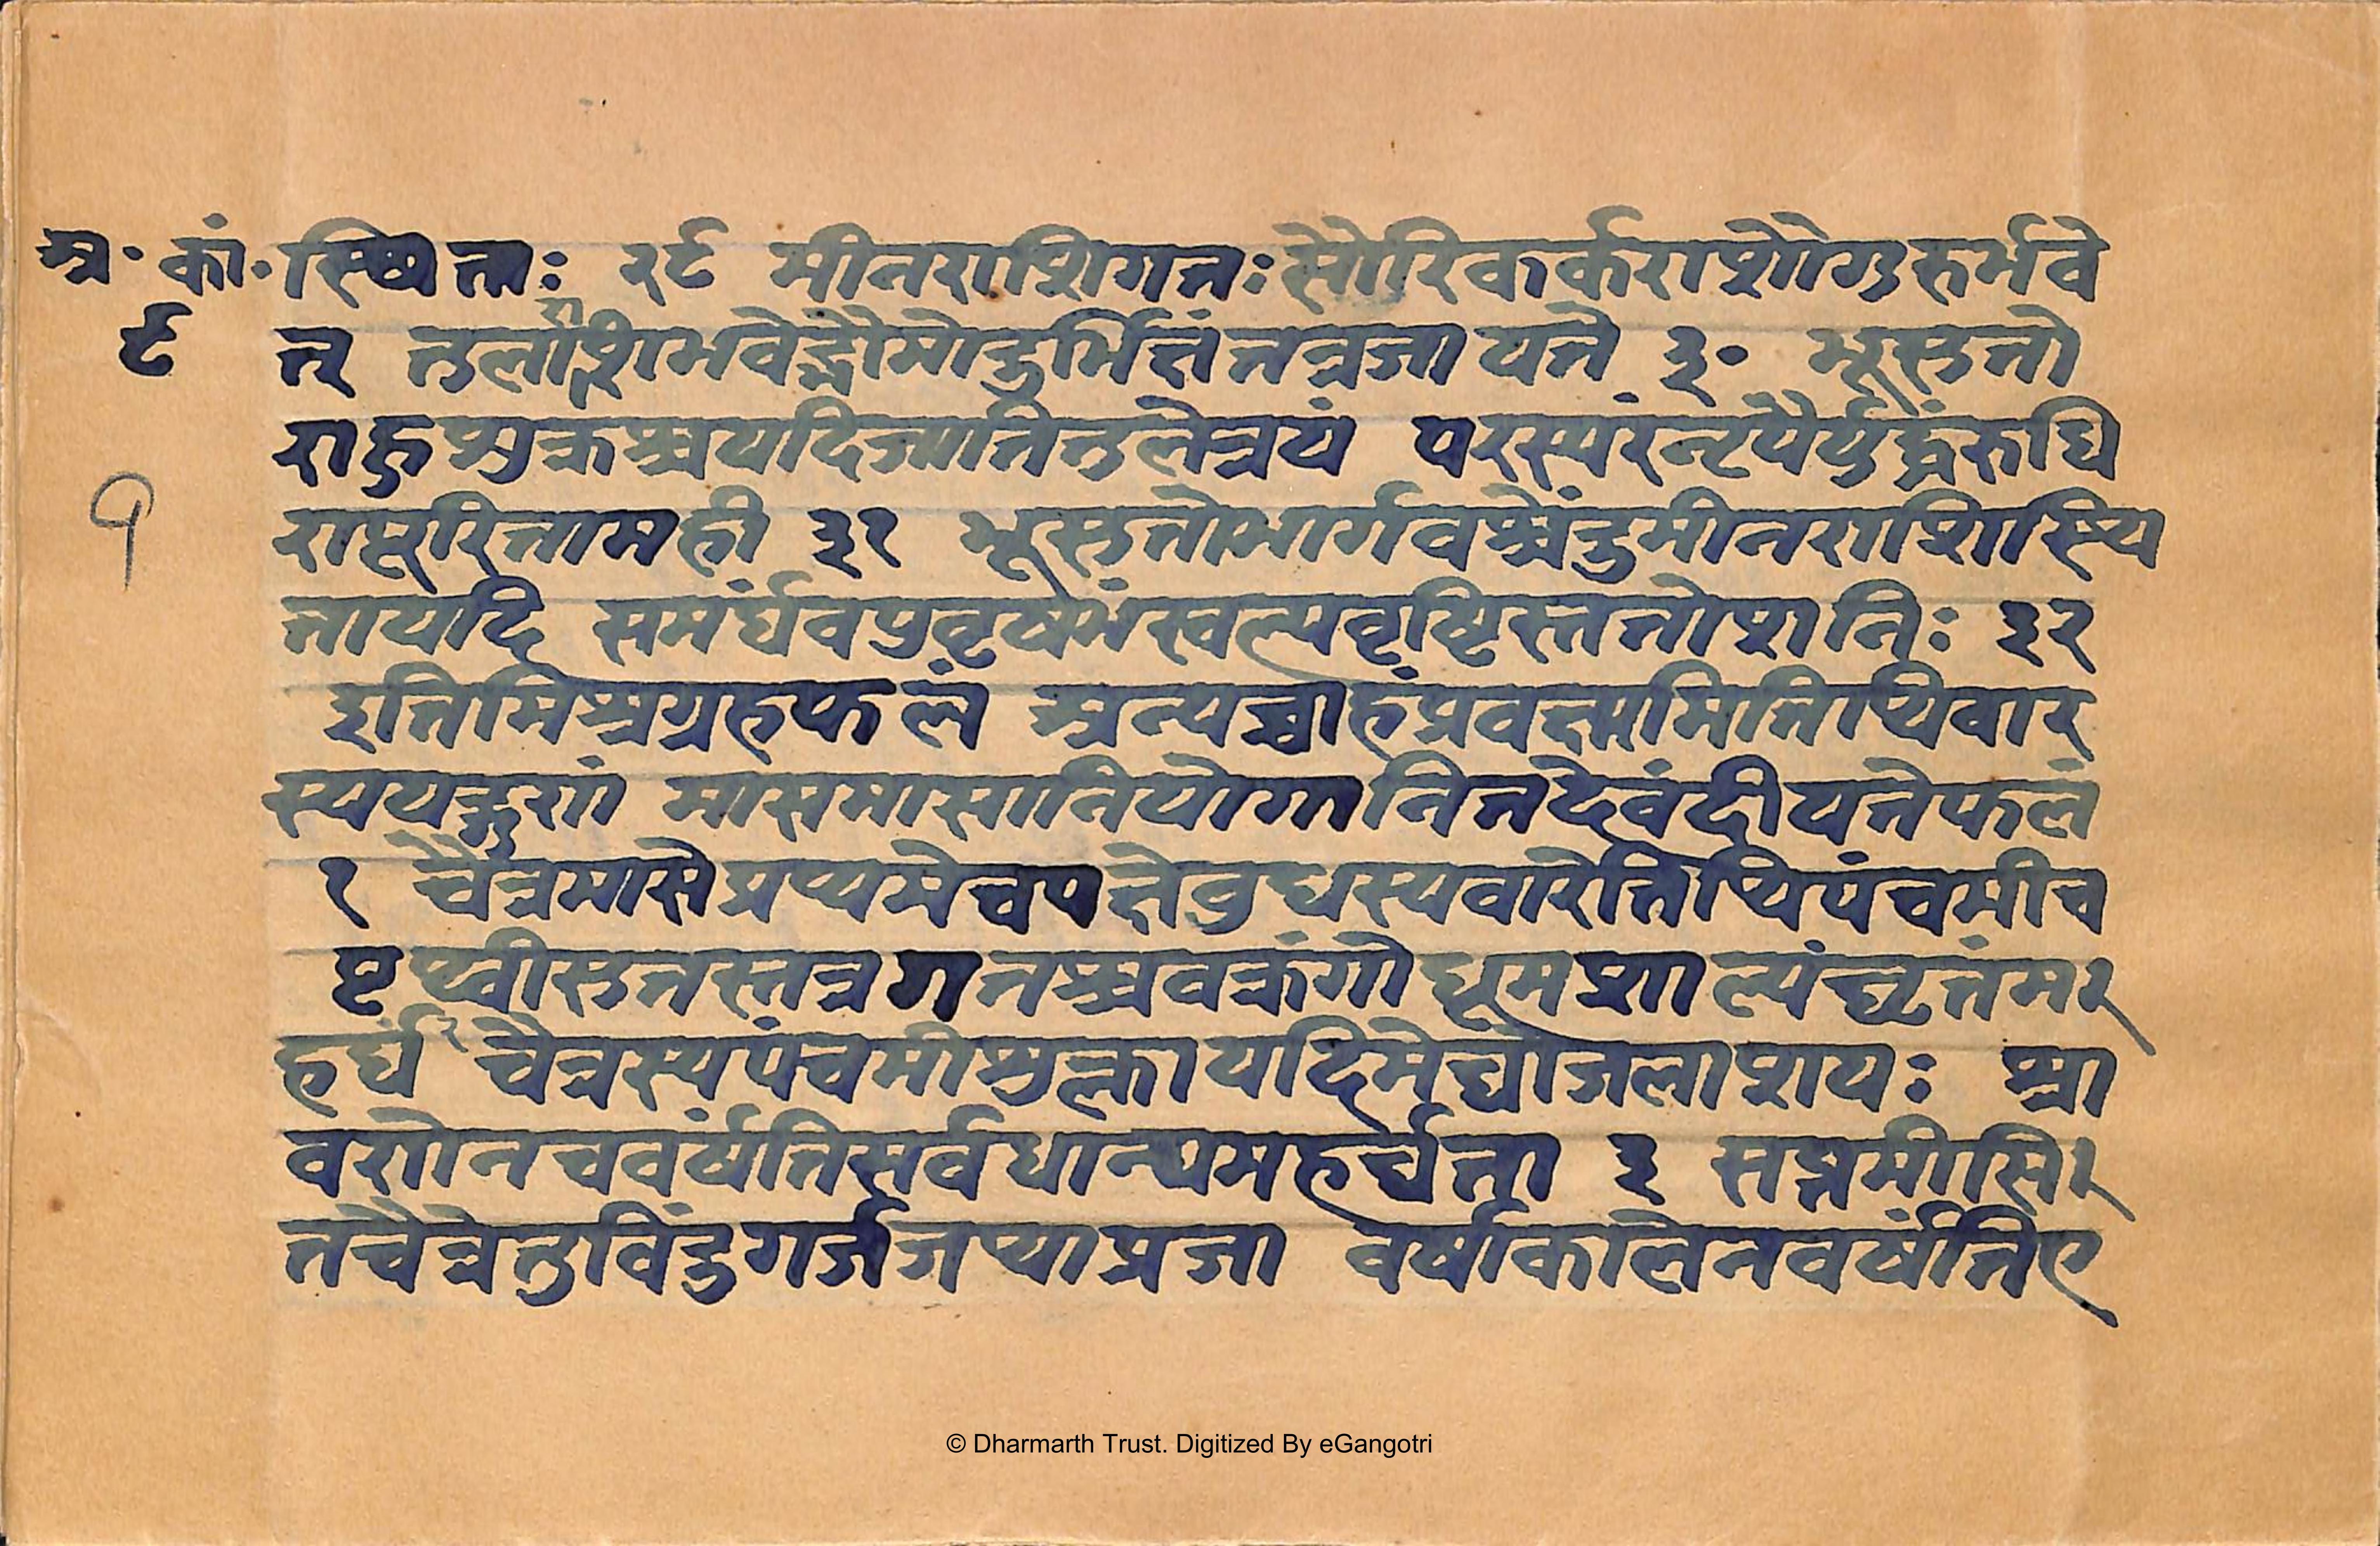 अ॰ कां॰ स्थिताः २९ मीनराशिगतः सौरिकर्कराशौगुरुर्भवे
९ त् तुलाराशिभवेद्भौमोदुर्भिक्षंतत्रजायते ३० भूसुतो
राहुशुक्रश्चयदिजातितुलेत्रयं परस्परंनृपैर्युद्धंरुधि
१
राष्टूरितामही ३१ भूसुतोभार्गवश्चेंदुमीनराशिस्थि
तायदि समर्घंवप्रवृषभंस्वल्पवृष्टिस्ततोशनिः ३२
इतिमिश्रग्रहफलं अन्यच्चाहंप्रवक्षामितिथिवार
स्ययद्गुणां मासमासातियोगानितदेवंदीयतेफलं
१ चैत्रमासेप्रथमेचपक्षेबुधस्यवारेतिथिपंचमीच
पृथ्वीसुतस्तत्रगतश्चवक्रंगोधूमशाल्यंघृतंम२
हर्घं चैत्रस्यपंचमीशुक्लायदिमेघोजलाशयः श्रा
वणोनचवर्षंतिसर्वधान्यमहर्घता ३ सप्तमीसि२
तचैत्रेतुविंदुगर्जजथाप्रजा वर्षाकालेनवर्षंतिए
© Dharmarth Trust. Digitized By eGangotri